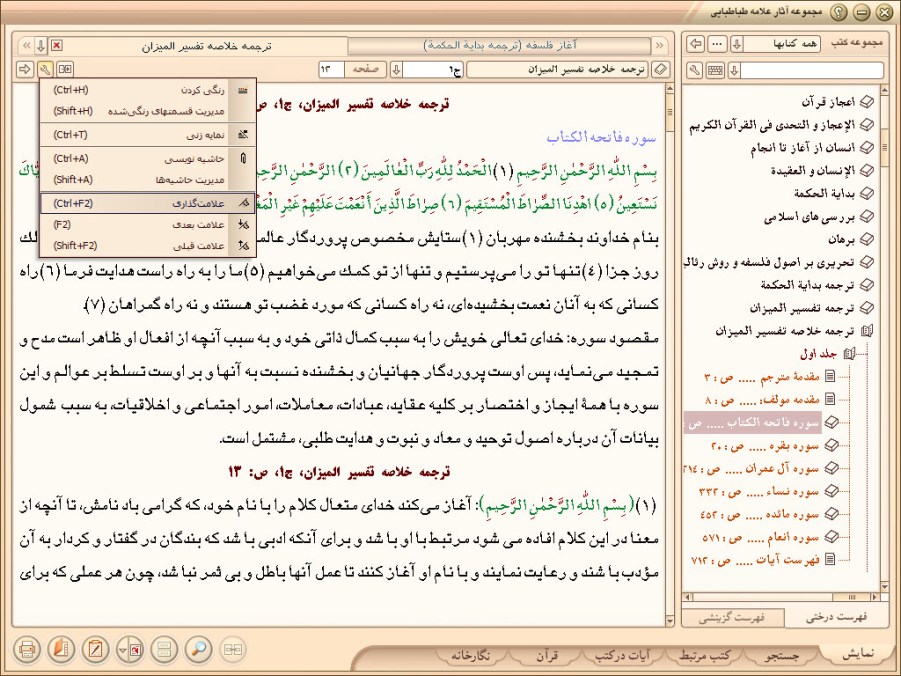 مجموعه آثار علامه طباطبایی
مجموعه کتب
همه کتابها
...
آغاز فلسفه (ترجمه بدایة الحکمة)
ترجمه خلاصه تفسیر المیزان
ترجمه خلاصه تفسیر المیزان
ج۱
صفحه
۱۳
اعجاز قرآن
الإعجاز و التحدی فی القرآن الکریم
انسان از آغاز تا انجام
الإنسان و العقیدة
بدایة الحکمة
بررسی های اسلامی
برهان
تحریری بر اصول فلسفه و روش رئال
ترجمه بدایة الحکمة
ترجمه تفسیر المیزان
ترجمه خلاصه تفسیر المیزان
جلد اول
مقدمهٔ مترجم ..... ص : ۳
مقدمه مولف: ..... ص : ۸
سوره فاتحه الکتاب ..... ص :
سوره بقره ..... ص : ۲۰
سوره آل عمران ..... ص : ۲۱۴
سوره نساء ..... ص : ۳۳۲
سوره مائده ..... ص : ۴۵۲
سوره انعام ..... ص : ۵۷۱
فهرست آیات ..... ص : ۷۱۲
فهرست درختی
فهرست گزینشی
رنگی کردن (Ctrl+H)
مدیریت قسمتهای رنگی‌شده (Shift+H)
نمایه زنی (Ctrl+T)
حاشیه نویسی (Ctrl+A)
مدیریت حاشیه‌ها (Shift+A)
علامت‌گذاری (Ctrl+F2)
علامت بعدی (F2)
علامت قبلی (Shift+F2)
ترجمه خلاصه تفسیر المیزان، ج۱، ص
سوره فاتحه الکتاب
بِسْمِ اللَّهِ الرَّحْمٰنِ الرَّحِیمِ (۱) الْحَمْدُ لِلَّهِ رَبِّ الْعٰالَمِینَ (۲) الرَّحْمٰنِ الرَّحِیـ
نَسْتَعِینُ (۵) اهْدِنَا الصِّرٰاطَ الْمُسْتَقِیمَ (۶) صِرٰاطَ الَّذِینَ أَنْعَمْتَ عَلَیْهِمْ غَیْرِ الْمَغْـ
بنام خداوند بخشنده مهربان (۱)ستایش مخصوص پروردگار عالمـ لك
روز جزا (۴)تنها تو را می‌پرستیم و تنها از تو کمك می‌خواهیم (۵)ما را به راه راست هدایت فرما (۶)راه
کسانی که به آنان نعمت بخشیده‌ای، نه راه کسانی که مورد غضب تو هستند و نه راه گمراهان (۷).
مقصود سوره: خدای تعالی خویش را به سبب کمال ذاتی خود و به سبب آنچه از افعال او ظاهر است مدح و
تمجید می‌نماید، پس اوست پروردگار جهانیان و بخشنده نسبت به آنها و بر اوست تسلط بر عوالم و این
سوره با همهٔ ایجاز و اختصار بر کلیه عقاید، عبادات، معاملات، امور اجتماعی و اخلاقیات، به سبب شمول
بیانات آن درباره اصول توحید و معاد و نبوت و هدایت طلبی، مشتمل است.
ترجمه خلاصه تفسیر المیزان، ج۱، ص: ۱۳
(۱)(بِسْمِ اللَّهِ الرَّحْمٰنِ الرَّحِیمِ): آغاز می‌کند خدای متعال کلام را با نام خود، که گرامی باد نامش، تا آنچه از
معنا در این کلام افاده می شود مرتبط با او باشد و برای آنکه ادبی باشد که بندگان در گفتار و کردار به آن
مؤدب باشند و رعایت نمایند و با نام او آغاز کنند تا عمل آنها باطل و بی ثمر نباشد، چون هر عملی که برای
نمایش
جستجو
کتب مرتبط
آیات در کتب
قرآن
نگارخانه